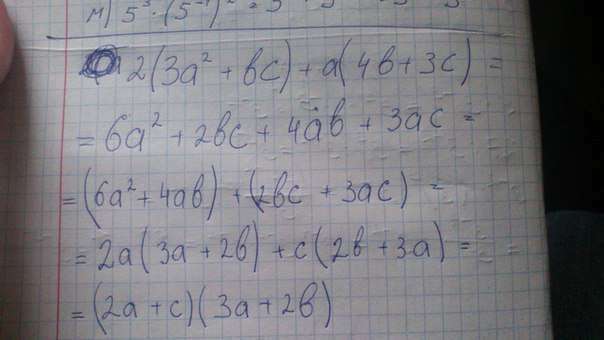 м) 5³ · (5⁻
2(3a² + bc) + a(4b + 3c) =
= 6a² + 2bc + 4ab + 3ac =
= (6a² + 4ab) + (2bc + 3ac) =
= 2a(3a + 2b) + c(2b + 3a) =
= (2a + c)(3a + 2b)